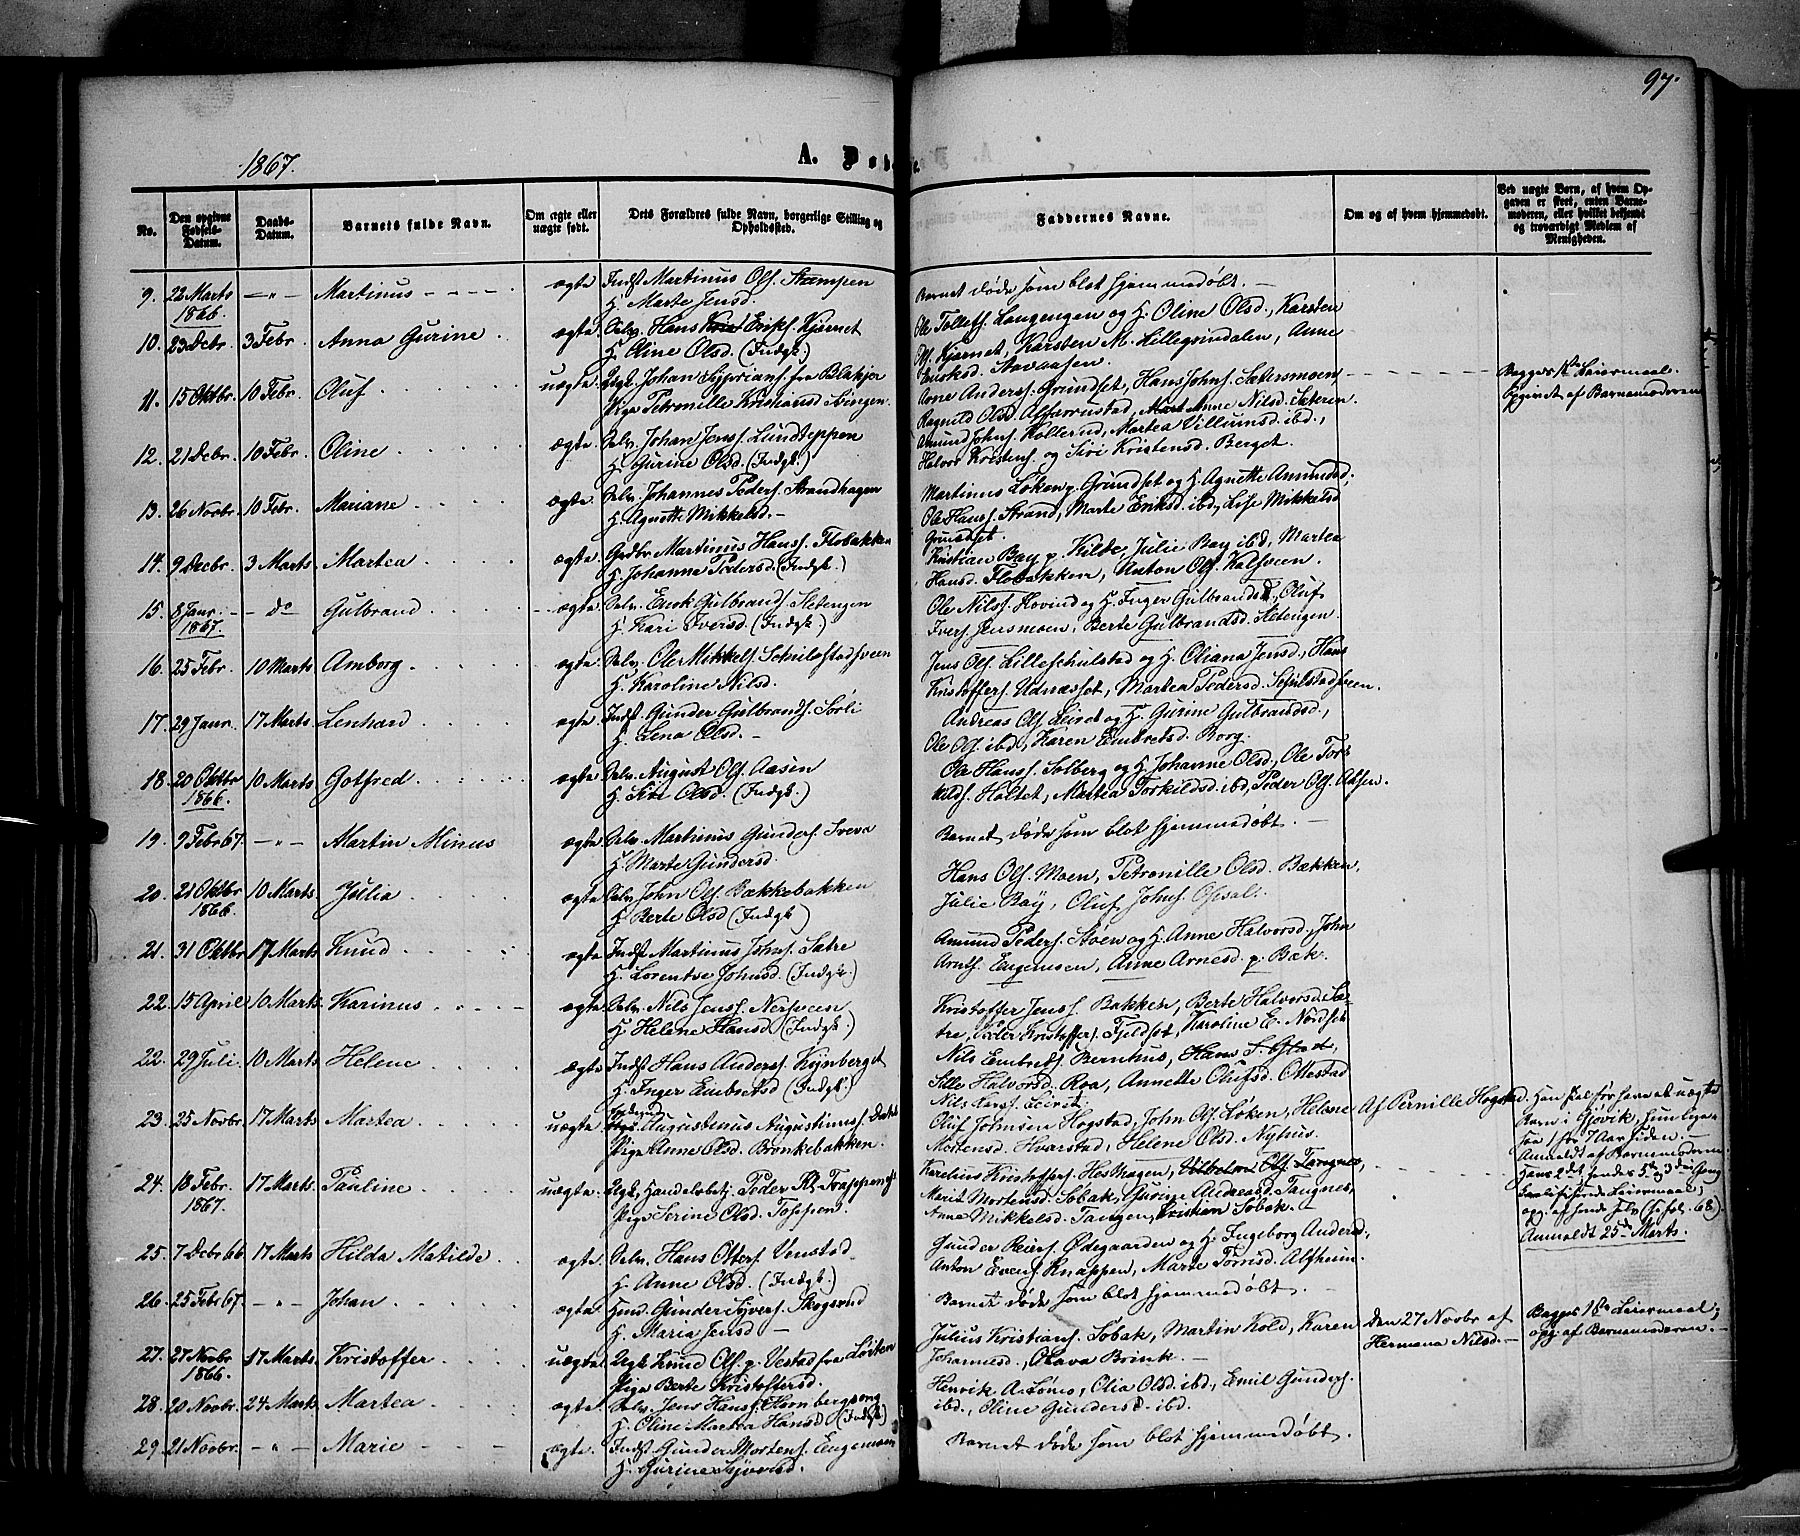 97.
1867.
A. Døbe
No.
Den opgivne Fødsels-Datum.
Daabs-Datum.
Barnets fulde Navn.
Om ægte eller uægte født.
Dets Forældres fulde Navn, borgerlige Stilling og Opholdssted.
Faddernes Navne.
Om og af hvem hjemmedøbt.
Ved uægte Børn, af hvem Opgaven er skeet, enten Barnemoderen, eller hvilket bekjendt og troværdigt Medlem af Menigheden.
9. 22 Marts 1866. -"- Martinus ægte Indst Martinus Ols. Stampen
H. Marte Jensd.
Barnet døde som blot hjemmedøbt.
10. 23 Debr. 3 Febr. Anna Gurine ægte. Selv. Hans Eriks. Kjernet
H. Oline Olsd. (Indgk.)
Ole Tollefs. Langengen og H. Oline Olsd., Karsten
Ols. Kjernet, Karsten M. Lillegrindalen, Anne
Eriksd. Stavaasen.
11. 15 Oktbr. 10 Febr. Oluf uægte. Ugk. Johan Syprians. fra Blakjer
Pige Petronille Kristiansd.
Arne Anders. Grundset, Hans Johns. Sætersmoen,
Ragnild Olsd. Alfarrustad, Anne Nilsd. Sæteren.
Begges 1ste Leiermaal.
Opgivet af Barnemoderen
12. 21 Debr. 10 Febr. Oline ægte Selv. Johan Jenss. Lundteppen
H. Gurine Olsd. (Indgk.)
Amund Johns. Kollerud, Martea Villumsd. ibd.,
Halvor Kristens. og Siri Kristensd. Berget.
13. 26 Novbr. 10 Febr. Mariane ægte. Selv. Johannes Peders. Strandhagen
H. Agnette Mikkelsd.
Martinus Løken p. Grundset og H. Agnette Amundsd.
Ole Hanss. Strand, Marte Eriksd. ibd., Lise Mikkelsd
Grundset.
14. 9 Decbr. 3 Marts Martea ægte. Grdbr Martinus Hanss. Flobakken
H. Johanna Pedersd. (Indgk.)
Kristian Bay p. Kilde, Julie Bay ibd, Martea
Hansd. Flobakken, Anton Ols. Kalsveen.
15. 8 Janr. 1867. do Gulbrand ægte. Selv. Erik Gulbrands. Sletengen
H. Kari Iversd. (Indgk.)
Ole Nilss. Hovind og H. Inger Gulbrandsd., Oluf
Ivers. Jensmoen, Berte Gulbrandsd. Sletengen.
16. 25 Febr. 10 Marts Amborg. ægte. Selv. Ole Mikkels. Schulstadsveen
H. Karoline Nilsd.
Jens Ols. Lilleschulstad og H. Oliana Jensd., Hans
Kristoffers. Udnæsset, Martea Pedersd. Schulstadsveen.
17. 29 Janr. 17 Marts. Lenhard ægte. Indst. Gunder Gulbrands. Sorli
H. Lena Olsd.
Andreas Ols. Leiret og H. Gurine Gulbrandsd.,
Ole Ols. ibd, Karen Embretsd. Borg.
18. 20 Oktbr 1866. 10 Marts. Gotfred ægte. Selv. August Ols. Aasen
H. Siri Olsd. (Indgk.)
Ole Hanss. Solberg og H. Johanne Olsd., Ole Tor-
kilds. Holtet, Martea Torkildsd. ibd, Peder Ols. Aasen.
19. 9 Febr 67. -"- Martin Minus ægte. Selv. Martinus Gunders. Svea
H. Marte Gundersd.
Barnet døde som blot hjemmedøbt.
20. 21 Oktbr 1866. 10 Marts Julia ægte Selv. John Ols. Bækkebakken
H. Berte Olsd (Indgk)
Hans Ols. Moen, Petronille Olsd. Bækken,
Julie Bay, Oluf Johns. Opsal.
21. 31 Oktbr 17 Marts. Knud ægte Indst Martinus Johns. Sætre
H. Lorentse Johnsd. (Indgk.)
Amund Peders. Støen og H. Anne Halvorsd., John
Arnts. Engemoen, Anne Arnesd. p. Bæk.
22. 15 April 10 Marts. Karinus ægte Selv. Nils Jenss. Nersveen
H. Helene Hansd. (Indgk.)
Kristoffer Jenss. Bakken, Berte Halvorsd. Sæ-
tre, Peder Kristoffers. Fjeldset, Karoline E. Nordset
22. 29 Juli. 10 Marts. Helene ægte Indst Hans Anders. Kynberget
H. Inger Embretsd. (Indgk.)
Nils Embrets. Bernhus, Hans
Sille Halvorsd. Roa, Annette Olufsd. Ottestad
Nils Lars. Leiret.
23. 25 Novbr. 17 Marts. Martea uægte Augustinus Augustinuss.
Pige Anne Olsd. Bronkebakken.
Oluf Johnsen Hogstad, John Ols. Løken, Helene
Mortensd. Hvarstad, Helene Olsd. Nyhus.
Af Pernille Hogstad.
Han skal før have et uægte
Barn i Gjøvik, hun ligesaa 1 for 7 Aar siden.
Anmeldt af Barnemoderen.
24. 18 Febr. 1867. 17 Marts. Pauline uægte. Ugk. Handelsbetj. Peder
Pige Serine Olsd. Toppen.
Karelius Kristoffers. Hesthagen, Vilhelm Ols. Tangnes,
Marit Mortensd. Søbak, Gurine Andreasd. Tangnes,
Anne Mikkelsd. Tangen, Kristian Søbak.
Hans 2det, hendes 5te
Leiermaal;
opg. af hende selv
Anmeldt 25de Marts.
25. 7 Debr 66. 17 Marts Hilda Matilde. ægte Selv. Hans Olsers. Venstad
H. Anne Olsd. (Indgk.)
Gunder Reiers. Ødegaarden og H. Ingeborg Andersd.
Anton Evens. Knappen, Marte Torrisd. Alfheim.
26. 25 Febr 67. -"- Johan ægte. Gunder Syvers. Skogsrud
H. Maria Jensd
Barnet døde som blot hjemmedøbt.
27. 27 Novbr 1866. 17 Marts. Kristoffer uægte Ugk. Knud Ols. p. Vestad fra Løiten
Pige Berte Kristoffersd.
Julius Kristians. Søbak, Martin Kold, Karen
Johannesd., Olava Brink.
Den 27 Novbr af
Hermana Nilsd.
Begges 1ste Leiermaal;
opg. af Barnemoderen.
28. 20 Novbr. 24 Marts. Martea ægte Selv. Jens Hanss. Hornbergseng
H. Oline Martea Hansd. (Indgk.)
Henrik A. Lømo, Olia Olsd. ibd., Emil Gunders.
ibd., Oline Gundersd. ibd.
29. 21 Novbr. -"- Marie ægte. Indst. Gunder Mortens. Engemoen
H. Gurine Syversd.
Barnet døde som blot hjemmedøbt.